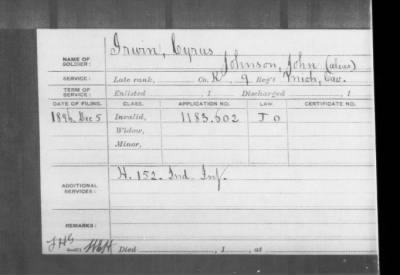 Irwin, Cyrus
NAME OF SOLDIER: Johnson, John (alias)
SERVICE: Late rank, Co. K, 9 Reg't Mich, Cav.
TERM OF SERVICE: Enlisted , 1 Discharged , 1
DATE OF FILING. CLASS. APPLICATION NO. LAW. CERTIFICATE NO.
1896, Dec 5 Invalid, 1183.602 J O
Widow,
Minor,
ADDITIONAL SERVICES: H. 152. Ind. Inf.
REMARKS:
Died , 1 , at